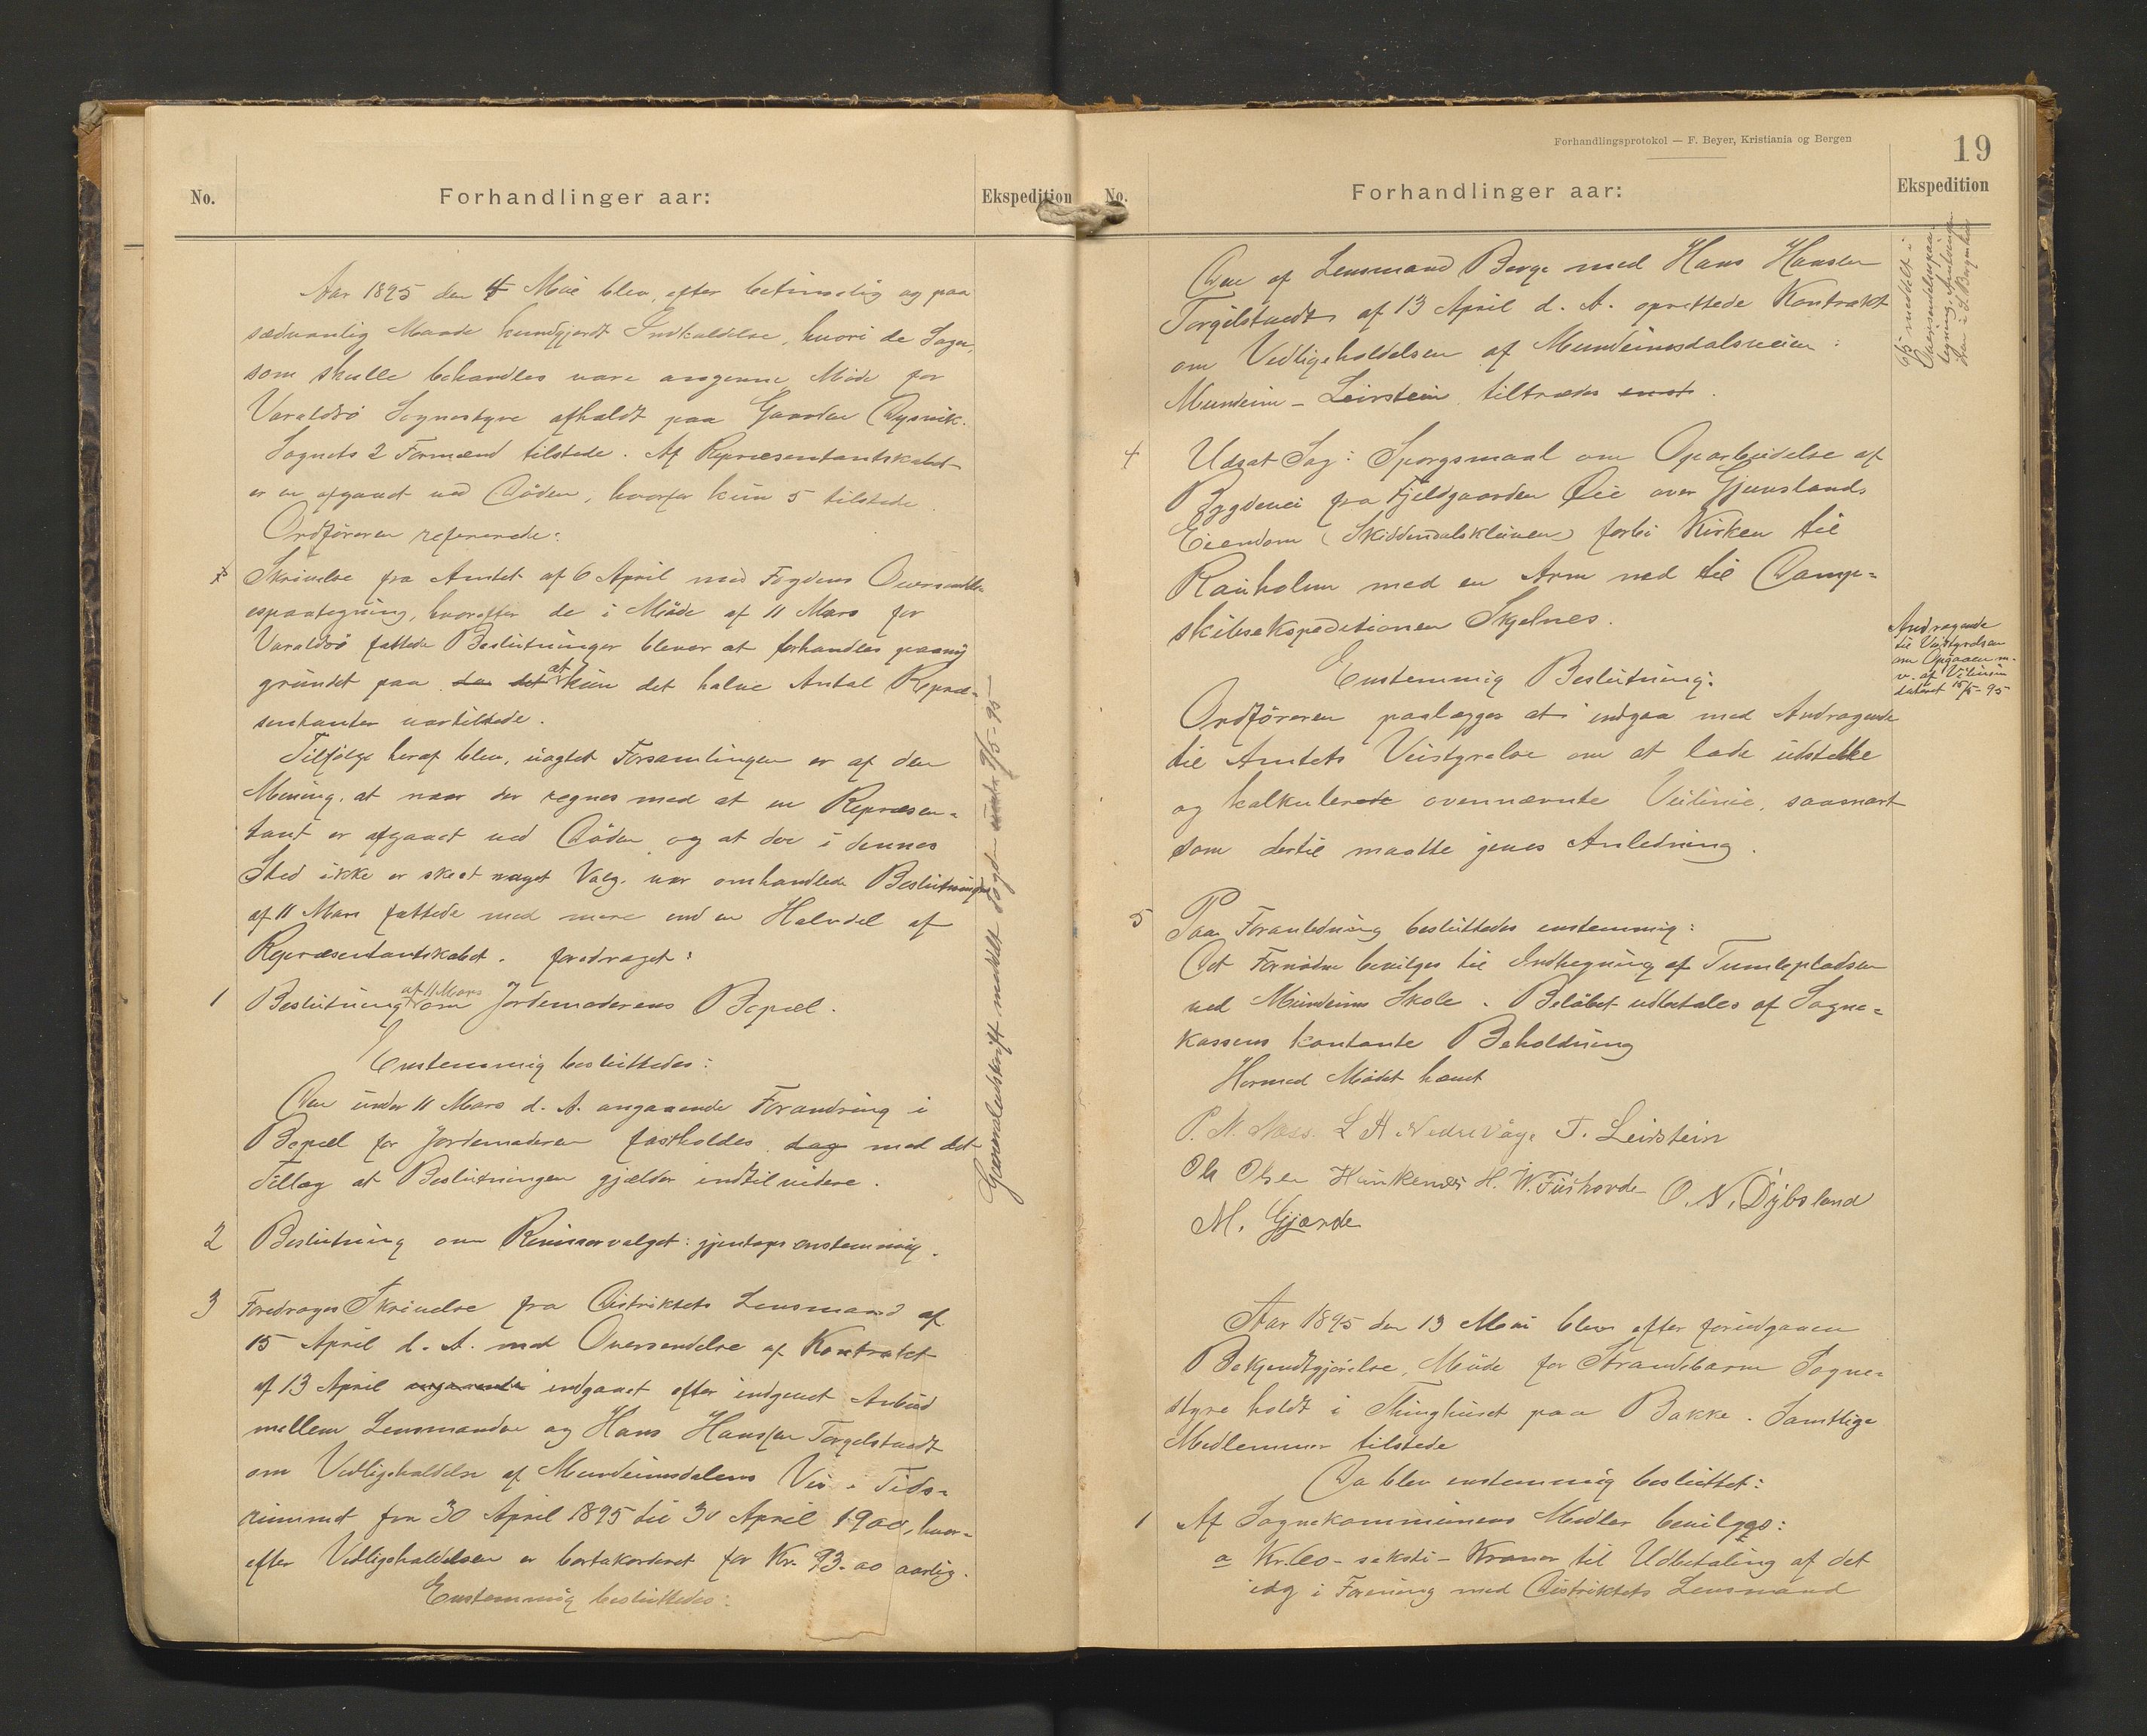 No.
Forhandlinger aar:
Ekspedition
Aar 1895 den 4 Mai blev, efter betimelig og paa
sædvanlig Maade kundgjordt Indkaldelse, hvori de Sager,
som skulle behandles vare angivne, Møde for
Varaldsø Sognestyre afholdt paa Gaarden Dysvik.
Sognets 2 Formænd tilstede. Af Repræsentantskabet
er en afgaaet ved Døden, hvorfor kun 5 tilstede.
Ordføreren refererede:
Skrivelse fra Amtet af 6 April med Fogdens Oversendel-
espaategning, hvorefter de i Møde af 11 Mars for
Varaldsø fattede Beslutninger bliver at forhandles paany
grundet paa da det at kun det halve Antal Repræ-
sentanter var tilstede.
Tilfølge heraf blev, uagtet Forsamlingen er af den
Mening, at naar der regnes med at en Repræsen-
tant er afgaaet ved Døden og at der i dennes
Sted ikke er skeet noget Valg, var omhandlede Beslutninger
af 11 Mars fattede med mere end en Halvdel af
Repræsentantskabet, foredraget:
1 Beslutning af 11 Mars om Jordemoderens Bopæl.
Enstemmig besluttedes:
Den under 11 Mars d. A. angaaende Forandring i
Bopæl for Jordemoderen fastholdes, dog med det
Tillæg at Beslutningen gjælder indtil videre.
2 Beslutning om Revisorvalget: gjentages enstemmig.
3 Foredrages Skrivelse fra Distriktets Lensmand af
15 April d. A. med Oversendelse af Kontrakt
af 13 April angaaende indgaaet efter indgivet Anbud
mellem Lensmanden og Hans Hanssen Torgelstuedt
om Vedligeholdelse af Mundeimsdalens Vei i Tids-
rummet fra 30 April 1895 til 30 April 1900, hvor-
efter Vedligeholdelsen er bortakorderet for Kr. 93.00 aarlig.
Enstemmig besluttedes:
Gjenpartudskrift meddelt Fogden under 9/5-95
Forhandlingsprotokol — F. Beyer, Kristiania og Bergen
19
No.
Forhandlinger aar:
Ekspedition
Den af Lensmand Berge med Hans Hansen
Torgilstuedt af 13 April d. A. oprettede Kontrakt
om Vedligeholdelsen af Mundeimsdalsveien:
Mundeim - Leirstein tiltrædes enst.
meddelt i
Oversendelsespaa-
tegning
4 Udsat Sag: Spørgsmaal om Oparbeidelse af
Bygdevei fra Fjeldgaarden Øie over Gjunslands
Eiendom (Skiddendalskleiven) forbi Kirken til
Rauholm med en Arm ned til Damp-
skibsekspeditionen Skjelnes.
Enstemmig Beslutning:
Ordføreren paalægges at indgaa med Andragende
til Amtets Veistyrelse om at lade udstikke
og kalkulerede ovennævnte Veilinie, saasnart
som dertil maatte gives Anledning.
Andragende
til Veistyrelsen
om Opgaaen m.
v. af Veilinien
dateret 15/5-95
5 Paa Foranledning besluttedes enstemmig:
Det Fornødne bevilges til Indhegning af Tumlepladsen
ved Mundeims Skole. Beløbet udbetales af Sogne-
kassens kontante Beholdning
Hermed Mødet hævet
P. N. Næss. L A Nedrevåge T. Leirstein
Ole Olsen Hunkenes H. W. Fushovde O. N. Dybsland
M. Gjærde
Aar 1895 den 13 Mai blev efter foriudgaaen
Bekjendtgjørelse, Møde for Strandebarm Sogne-
styre holdt i Thinghuset paa Bakke. Samtlige
Medlemmer tilstede
Da blev enstemmig besluttet:
1 Af Sognekommunens Midler bevilges:
a Kr. 60 - seksti - Kroner til Udbetaling af det
idag i Forening med Distriktets Lensmand